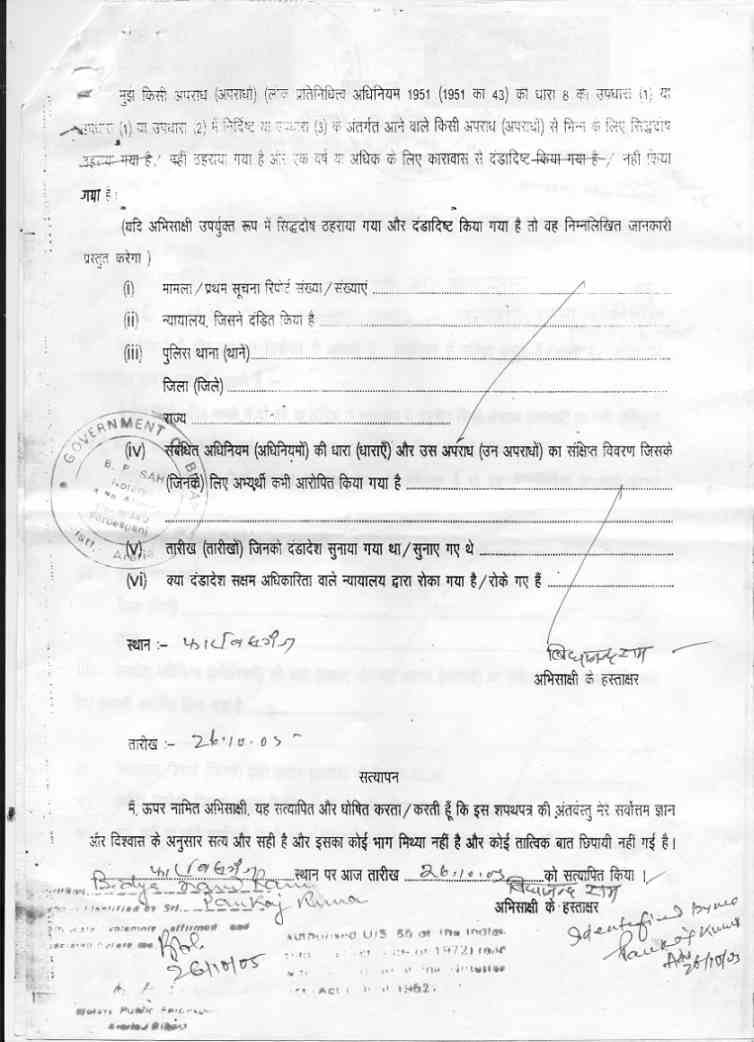 मुझे किसी अपराध (अपराधों) (लोक प्रतिनिधित्व अधिनियम 1951 (1951 का 43) की धारा 8 की उपधारा (1) या
उपधारा (1) या उपधारा (2) में निर्दिष्ट या उपधारा (3) के अंतर्गत आने वाले किसी अपराध (अपराधों) से भिन्न के लिए सिद्धदोष
ठहराया गया है / नहीं ठहराया गया है और एक वर्ष या अधिक के लिए कारावास से दंडादिष्ट किया गया है / नहीं किया
गया है।
(यदि अभिसाक्षी उपर्युक्त रूप में सिद्धदोष ठहराया गया और दंडादिष्ट किया गया है तो वह निम्नलिखित जानकारी
प्रस्तुत करेगा )
(i) मामला / प्रथम सूचना रिपोर्ट संख्या / संख्याएं
(ii) न्यायालय, जिसने दंडित किया है
(iii) पुलिस थाना (थाने)
जिला (जिले)
राज्य
(iv) संबंधित अधिनियम (अधिनियमों) की धारा (धाराएँ) और उस अपराध (उन अपराधों) का संक्षिप्त विवरण जिसके
(जिनके) लिए अभ्यर्थी कभी आरोपित किया गया है
GOVERNMENT
B. P. SAH
(v) तारीख (तारीखों) जिनको दंडादेश सुनाया गया था / सुनाए गए थे
(vi) क्या दंडादेश सक्षम अधिकारिता वाले न्यायालय द्वारा रोका गया है / रोके गए हैं
स्थान :-
अभिसाक्षी के हस्ताक्षर
तारीख :- 26.10.05
सत्यापन
मैं, ऊपर नामित अभिसाक्षी, यह सत्यापित और घोषित करता / करती हूँ कि इस शपथपत्र की अंतर्वस्तु मेरे सर्वोत्तम ज्ञान
और विश्वास के अनुसार सत्य और सही है और इसका कोई भाग मिथ्या नहीं है और कोई तात्विक बात छिपायी नहीं गई है।
स्थान पर आज तारीख 26.10.05 को सत्यापित किया।
अभिसाक्षी के हस्ताक्षर
identified by Sri Pankaj Kumar
solemnly affirmed and
declared before me
26/10/05
Authorised U/S
Act 1952
Notary Public
Identified by me
Pankaj Kumar
Adv
26/10/05